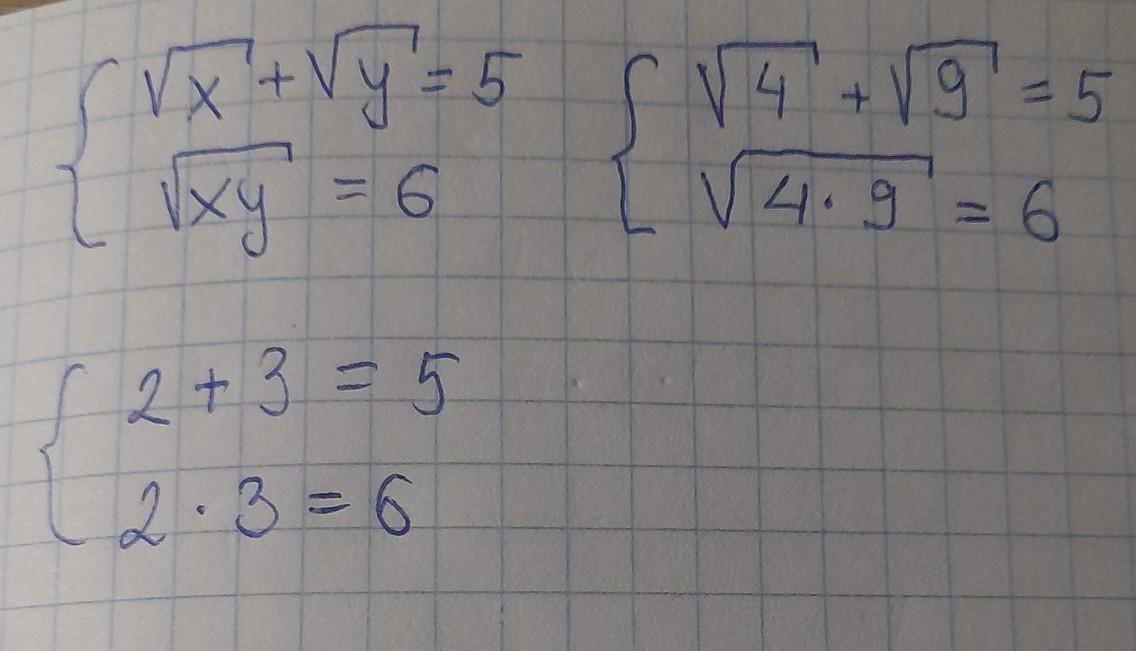 √x + √y = 5
√xy = 6
√4 + √9 = 5
√4·9 = 6
2 + 3 = 5
2 · 3 = 6